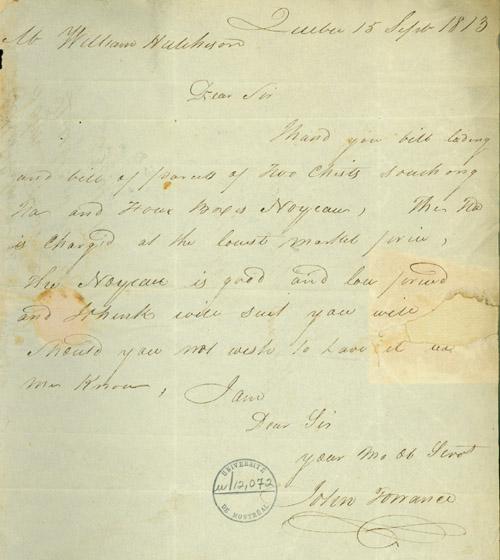 Quebec 15 Sept 1813
Mr William Hutchison
Dear Sir
I hand you bill lading
and bill of parcels of Two Chests souchong
Tea and Four Boxes Noyeau, The Tea
is Charged at the lowest market price,
The Noyeau is good and low priced
and I think will suit you well
Should you not wish to have it
me Know, I am
Dear Sir
your Mo Ob Servt
John Torrance
UNIVERSITÉ
12,072
DE MONTRÉAL